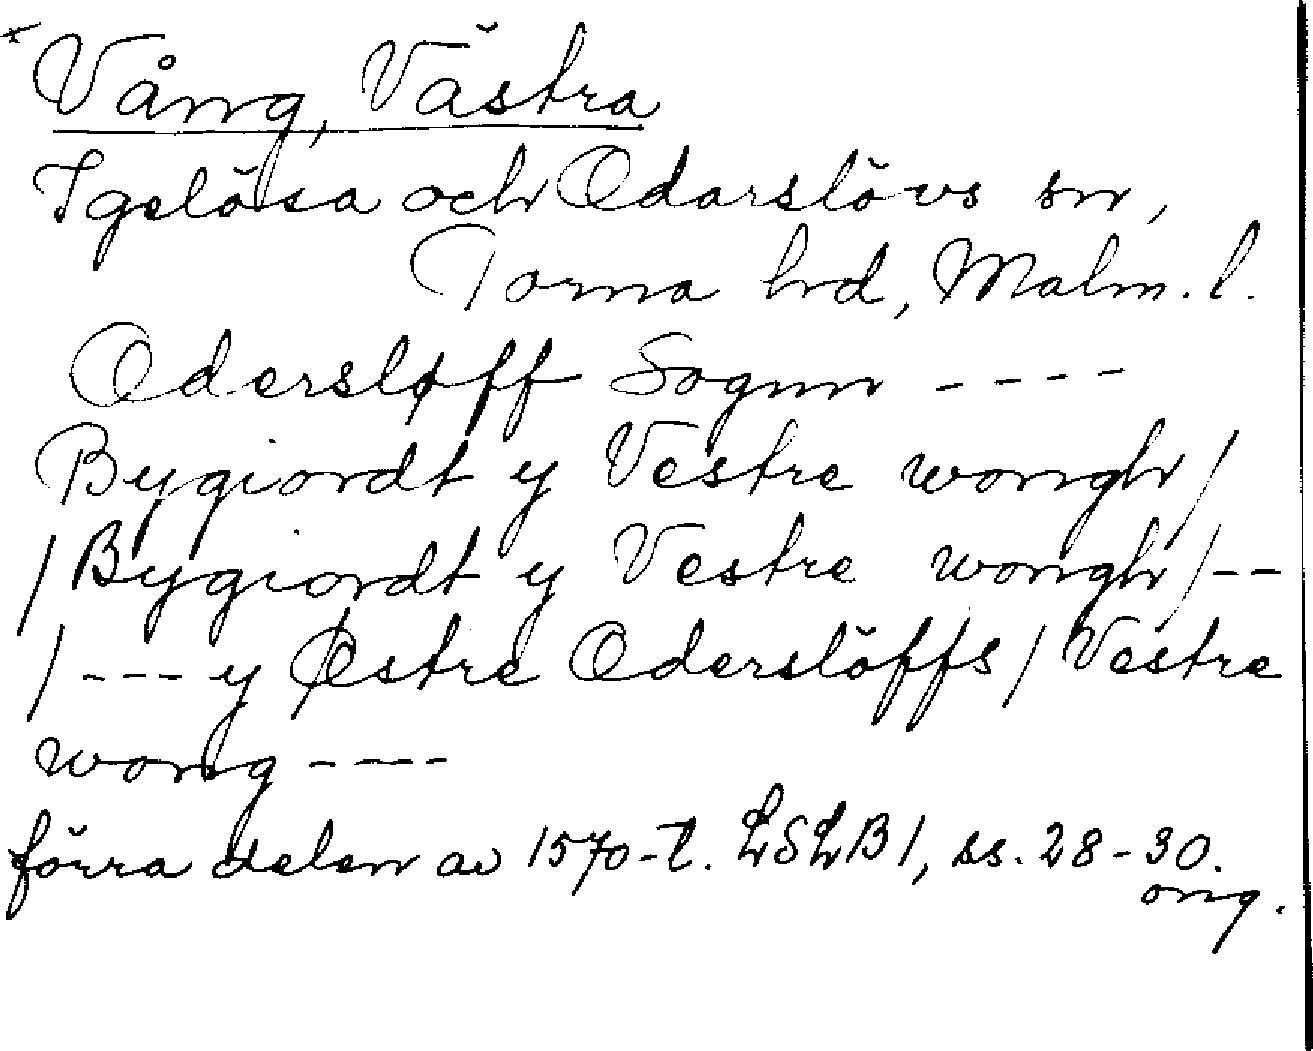 * Vång, Västra
Igelösa och Odarslövs sn,
Torna hrd, Malm. l.
Odersløff Sognn ----
Bygiordt y Vestre wongh/
/Bygiordt y Vestre wongh/--
/---y Østre Oderslöffs/Vestre
wong ----
förra delen av 1570-t. LSLB 1, ss. 28-30.
orig.